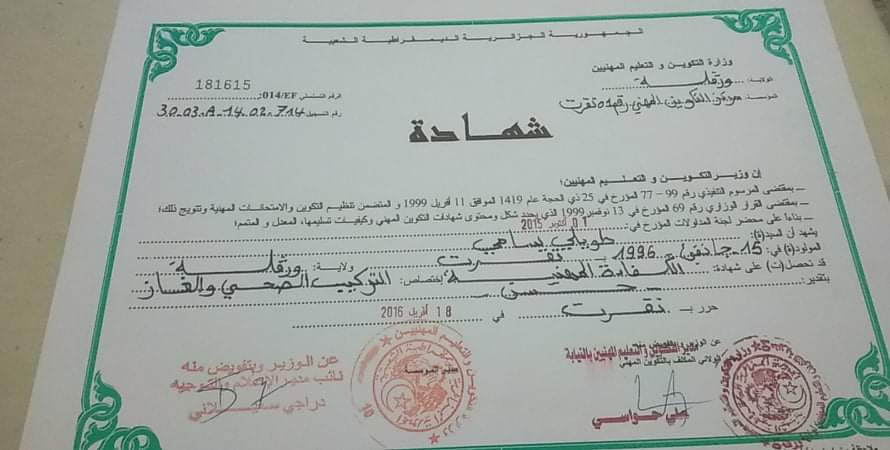 الجمهورية الجزائرية الديمقراطية الشعبية
وزارة التكوين و التعليم المهنيين
الولاية: ورقلة
المؤسسة: التكوين المهني تقرت
الرقم التسلسلي 014/EF: 181615
رقم التسجيل 30.03.A.14.02.714
شهادة
إن وزير التكوين و التعليم المهنيين؛
ـ بمقتضى المرسوم التنفيذي رقم 99 – 77 المؤرخ في 25 ذي الحجة عام 1419 الموافق 11 أفريل 1999 و المتضمن تنظيم التكوين والامتحانات المهنية وتتويج ذلك؛
ـ بمقتضى القرار الوزاري رقم 69 المؤرخ في 13 نوفمبر 1999 الذي يحدد شكل ومحتوى شهادات التكوين المهني وكيفيات تسليمها، المعدل و المتمم؛
ـ بناءا على محضر لجنة المداولات المؤرخ في: 01 أكتوبر 2015
يشهد أن السيد(ة): طويالي سامي
المولود(ة) في: 15 جانفي 1996 تقرت ولاية: ورقلة
قد تحصل(ت) على شهادة: الكفاءة المهنية بإختصاص: التركيب الصحي والغاز
بتقدير: حسن
حرر بـ تقرت في 18 أفريل 2016
عن الوزير
وزير التكوين و التعليم المهنيين بالنيابة
المكلف بالتكوين المهني
علي حواسي
مدير المؤسسة
عن الوزير وبتفويض منه
نائب مدير الإعلام والتوجيه
دراجي